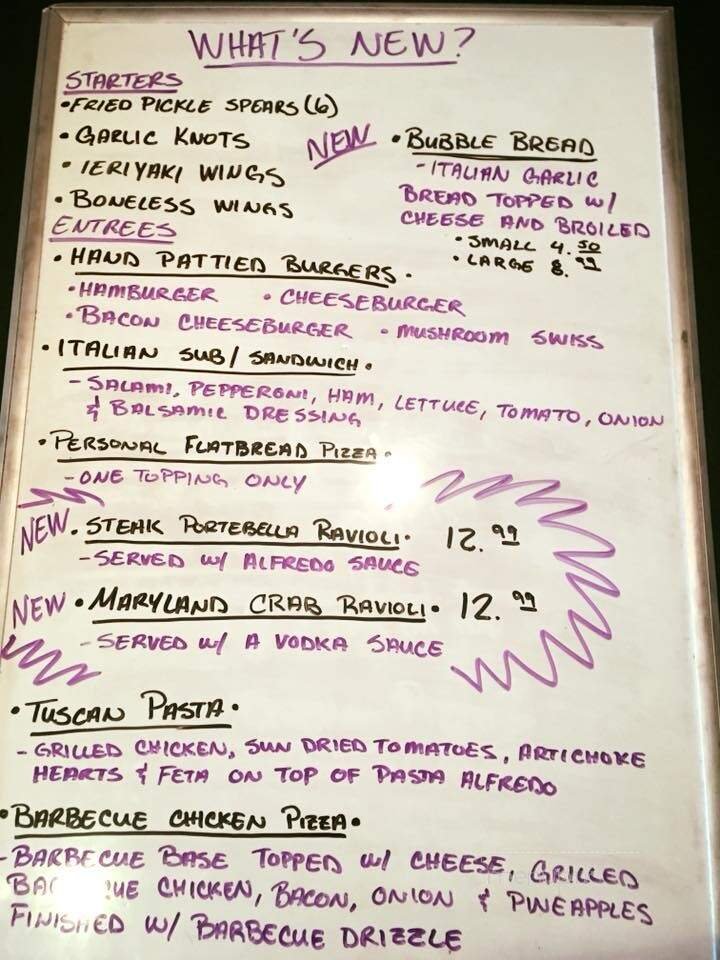 WHAT'S NEW?
STARTERS
•FRIED PICKLE SPEARS (6)
•GARLIC KNOTS
•TERIYAKI WINGS
•BONELESS WINGS
NEW •BUBBLE BREAD
-ITALIAN GARLIC
BREAD TOPPED W/
CHEESE AND BROILED
•SMALL 4.50
•LARGE 8.99
ENTREES
•HAND PATTIED BURGERS•
•HAMBURGER •CHEESEBURGER
•BACON CHEESEBURGER •MUSHROOM SWISS
•ITALIAN SUB/SANDWICH•
-SALAMI, PEPPERONI, HAM, LETTUCE, TOMATO, ONION
& BALSAMIC DRESSING
•PERSONAL FLATBREAD PIZZA•
-ONE TOPPING ONLY
NEW •STEAK PORTEBELLA RAVIOLI• 12.99
-SERVED W/ ALFREDO SAUCE
NEW •MARYLAND CRAB RAVIOLI• 12.99
-SERVED W/ A VODKA SAUCE
•TUSCAN PASTA•
-GRILLED CHICKEN, SUN DRIED TOMATOES, ARTICHOKE
HEARTS & FETA ON TOP OF PASTA ALFREDO
•BARBECUE CHICKEN PIZZA•
-BARBECUE BASE TOPPED W/ CHEESE, GRILLED
CHICKEN, BACON, ONION & PINEAPPLES
FINISHED W/ BARBECUE DRIZZLE